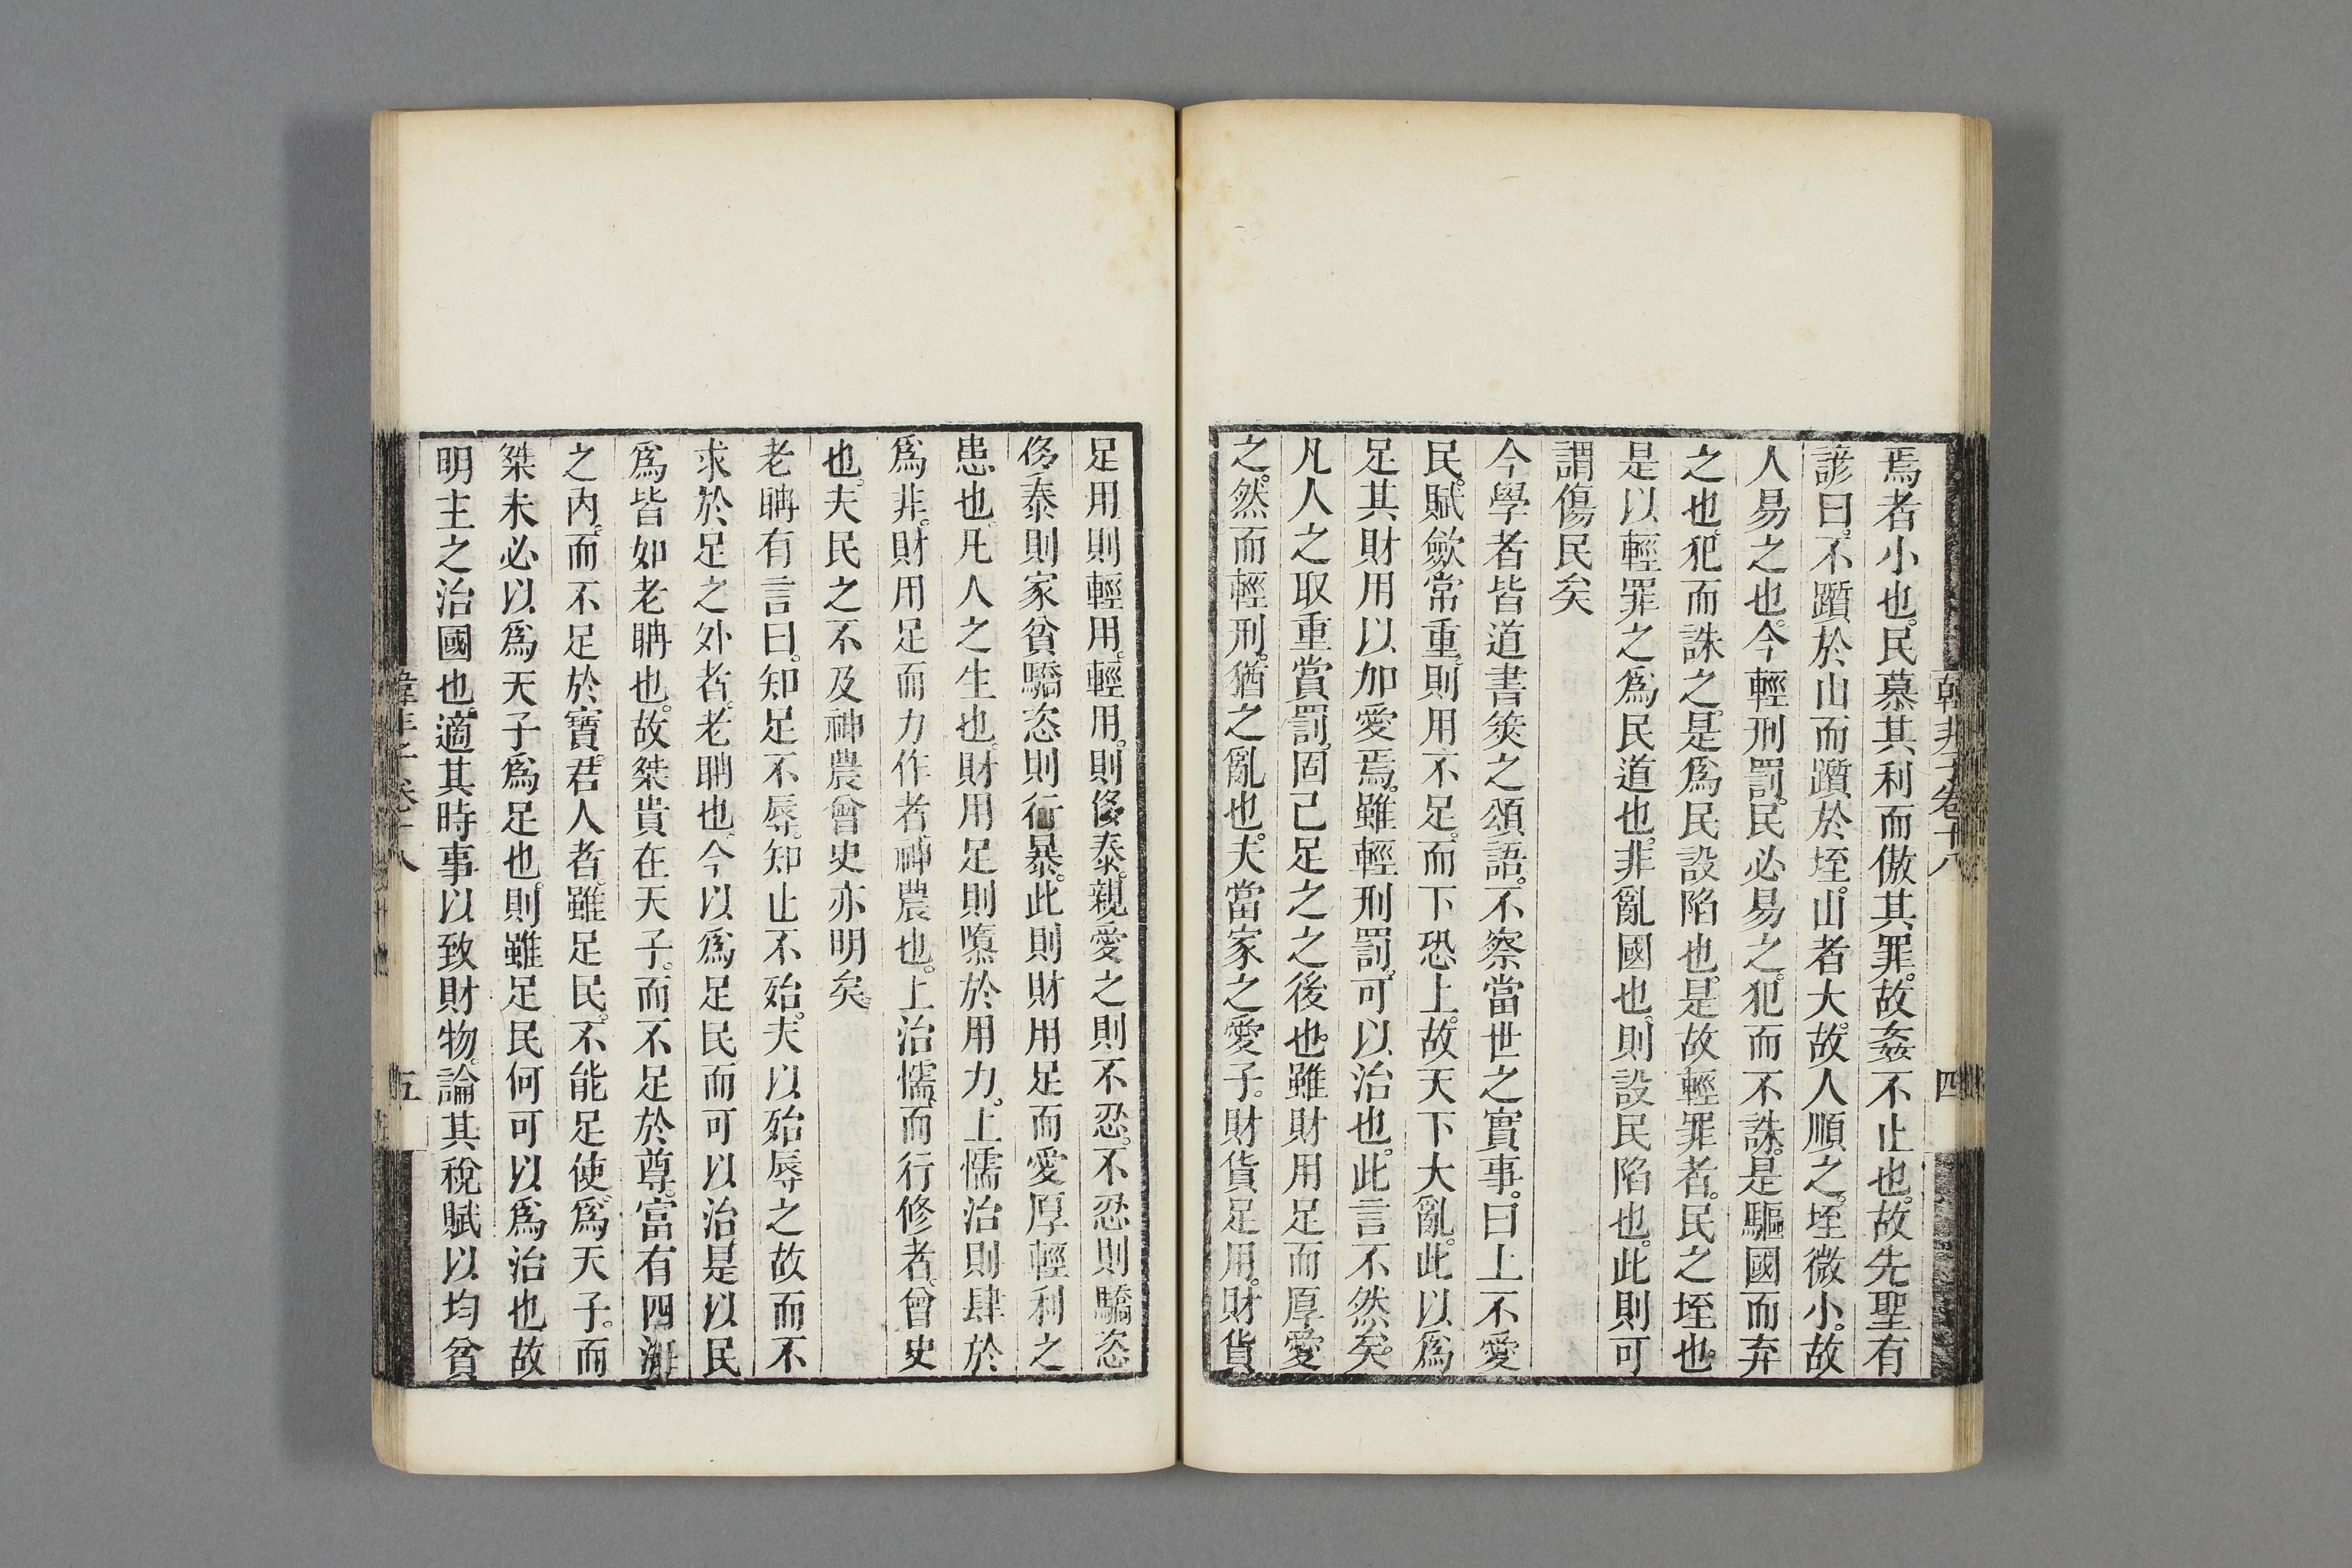 焉者小也。民慕其利而傲其罪。故姦不止也。故先聖有
諺曰。不躓於山而躓於垤。山者大。故人順之。垤微小。故
人易之也。今輕刑罰。民必易之。犯而不誅。是驅國而弃
之也。犯而誅之。是爲民設陷也。是故輕罪者。民之垤也。
是以輕罪之爲民道也。非亂國也。則設民陷也。此則可
謂傷民矣
今學者皆道書筴之頌語。不察當世之實事。曰上不愛
民。賦斂常重。則用不足。而下恐上。故天下大亂。此以爲
足其財用以加愛焉。雖輕刑罰。可以治也。此言不然矣。
凡人之取重賞罰。固已足之之後也。雖財用足而厚愛
之。然而輕刑。猶之亂也。夫當家之愛子。財貨足用。財貨
韓非子卷十八
四
足用則輕用。輕用。則侈泰。親愛之則不忍。不忍則驕恣
侈泰則家貧驕恣則行暴。此則財用足而愛厚輕利之
患也。凡人之生也。財用足則隳於用力。上懦治則肆於
爲非。財用足而力作者神農也。上治懦。而行修者。曾史
也。夫民之不及神農曾史亦明矣。
老聃有言曰。知足不辱。知止不殆。夫以殆辱之故而不
求於足之外者。老聃也。今以爲足民。而可以治是以民
爲皆如老聃也。故桀貴在天子。而不足於尊。富有四海
之內。而不足於寶。君人者。雖足民。不能足使爲天子。而
桀未必以爲天子爲足也。則雖足民何可以爲治也故
明主之治國也。適其時事以致財物。論其稅賦以均貧
韓非子卷十八
五